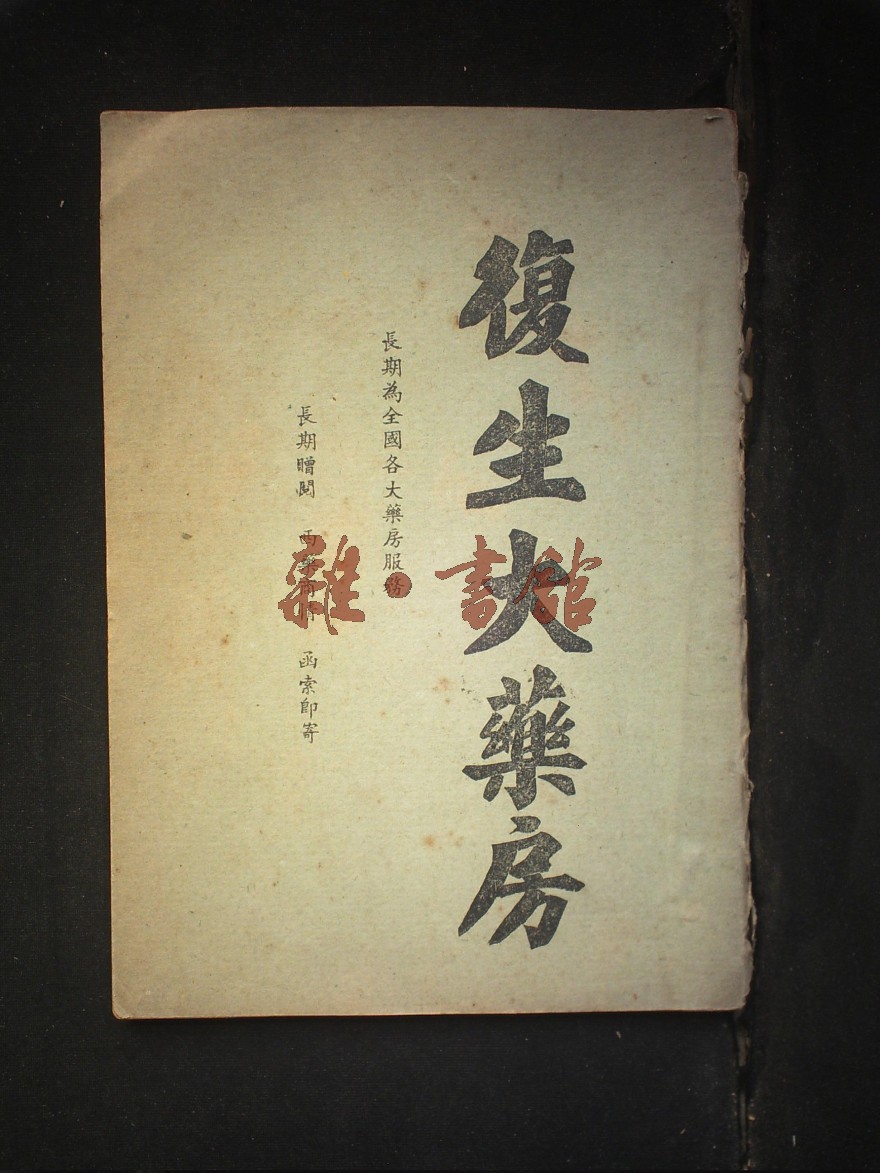 復生大藥房
長期為全國各大藥房服務
長期贈閱 西藥商情 函索即寄
雜·書館